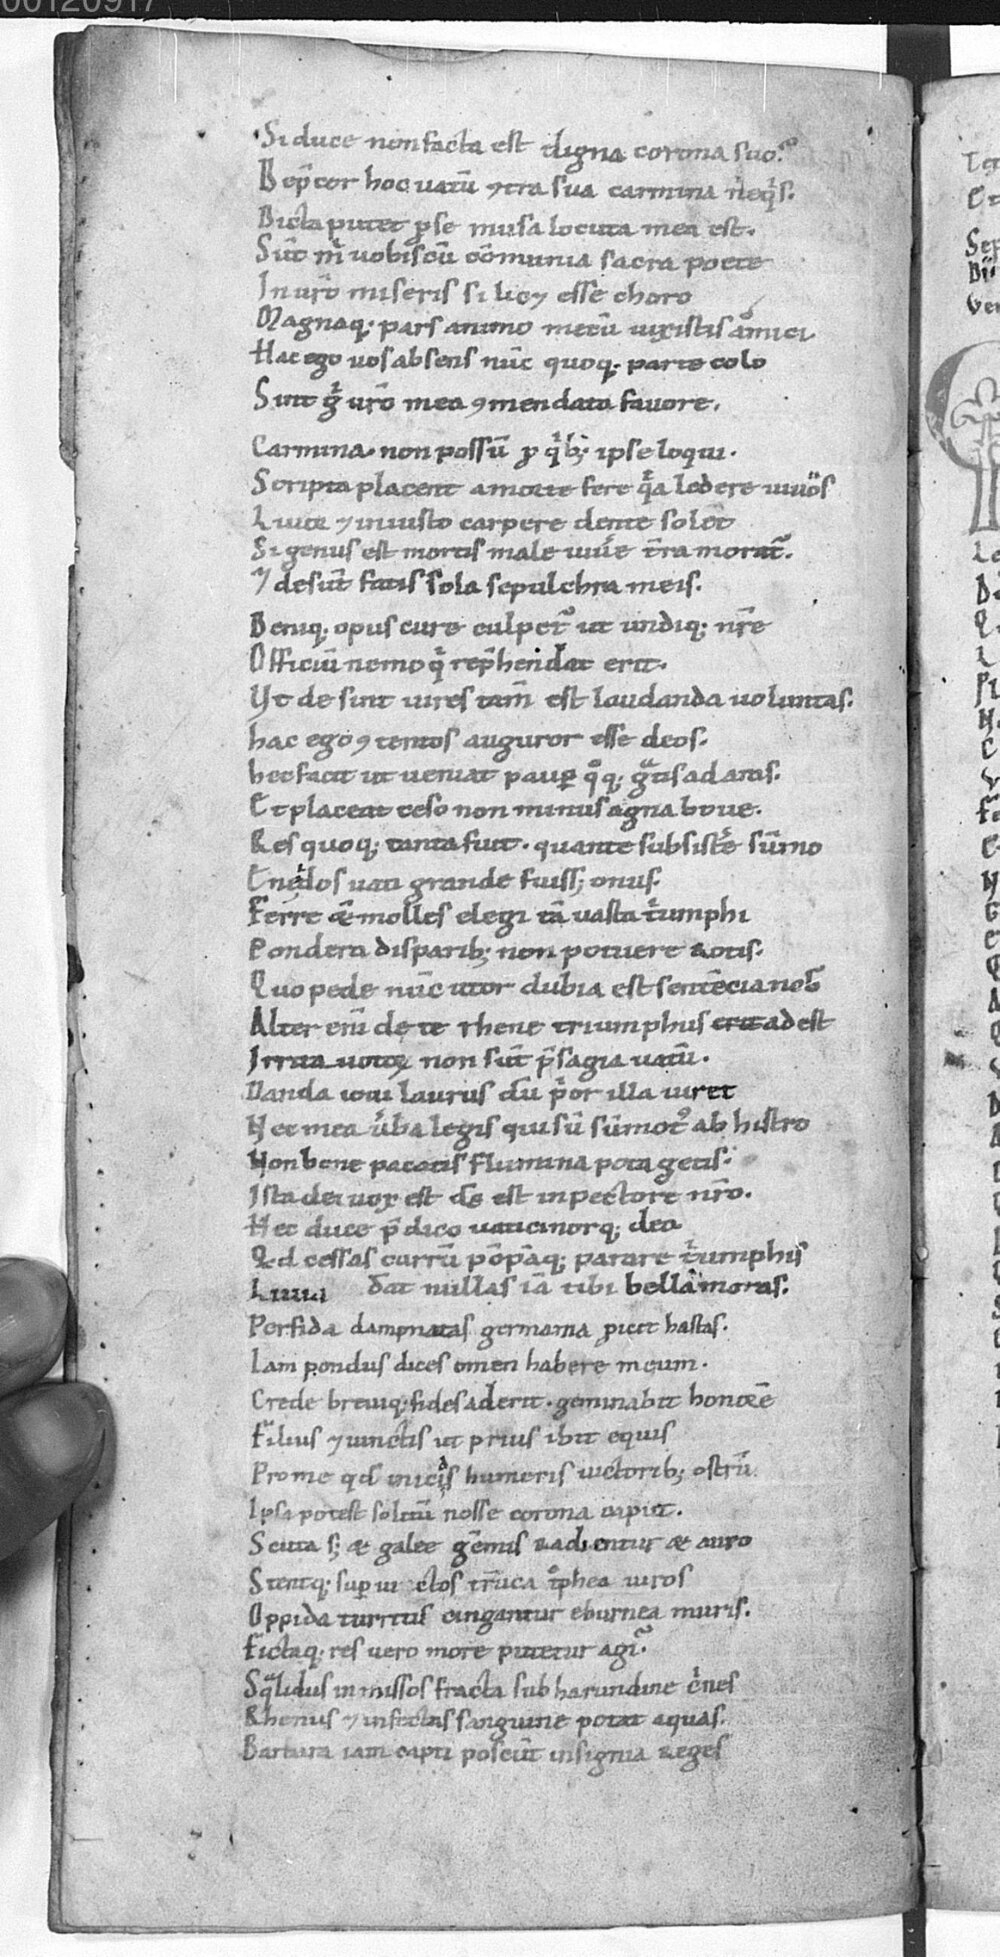 00120917
Si duce non facta est digna corona suo.
Dep̄cor hoc uatū ɔtra sua carmina ne q̇s.
Dicta putet p se musa locuta mea est.
Sūt m̄ uobiscū cōmunia sacra poete
In ur̄o miseris si licꝫ esse choro
Magnaq; pars animo mecū uixistis amici
Hac ego uos absens nūc quoq; parte colo
Sint g̊ ur̄o mea ɔmendata fauore.
Carmina. non possū p q̇b; ipse loqui.
Scripta placent a morte fere q̇a ledere uiuos
Liuor ⁊ iniusto carpere dente solet
Si genus est mortis male uiue t̄ra morat᷑.
⁊ desūt fatis sola sepulchra meis.
Deniq; opus cure culpet᷑ ut undiq; nr̄e
Officiū nemo q̇ rep̄hendat erit.
Ut desint uires tam̄ est laudanda uoluntas.
hac ego ɔtentos auguror esse deos.
hec facit ut ueniat paup̱ q̊q; g̃tis ad aras.
Et placeat ceso non minus agna boue.
Res quoq; tanta fuit. quante subsistēe sūmo
Eneidos uati grande fuiss; onus.
Ferre & molles elegi tā uasta t̊umphi
Pondera disparib; non potuere rotis.
Quo pede nūc utor dubia est sentēcia nob̄
Alter eni̅ de te rhene triumphus adest
Irrita uotoꝝ non sūt p̄sagia uatū.
Danda ioui laurus dū p̊or illa uiret
Nec mea uba legis qui sū sūmot᷑ ab histro
Non bene pacatis flumina pota getis.
Ista dei uox est d̄s est in pectore nr̄o.
Hec duce p̄dico uaticinorq; deo
Qd cessas currū pōpāq; parare t̊umphis
Liuia dat nullas iā tibi bella moras.
Perfida dampnatas germania p̱icit hastas.
Iam pondus dices omen habere meum.
Crede breuiq; fides aderit. geminabit honorē
Filius ⁊ iunctis ut prius ibit equis
Prome qd inicias humeris uictorib; ostrū
Ipsa potest solitū nosse corona caput.
Scuta s; & galee gēmis radientur & auro
Stentq; sup̱ uictos trūca t̊phea uiros
Oppida turritis cingantur eburnea muris.
Fictaq; res uero more putetur agi.
Sq̃lidus inmissos fracta sub harundine c̊nes
Rhenus ⁊ infectas sanguine potat aquas.
Barbara iam capti poscūt insignia reges